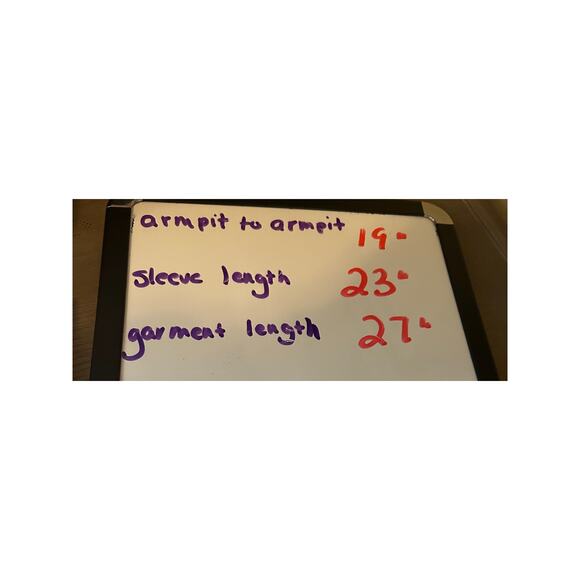 armpit to armpit 19"
sleeve length 23"
garment length 27"